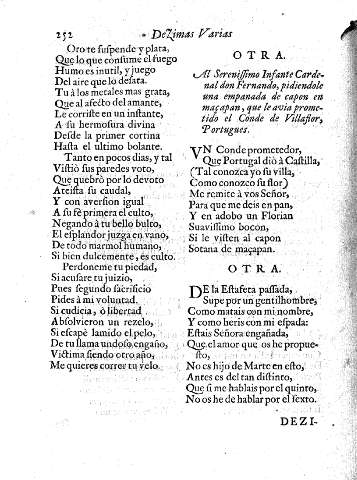 252 Dezimas Varias
Oro te suspende y plata,
Que lo que consume el fuego
Humo es inutil, y juego
Del aire que lo desata.
Tu à los metales mas grata,
Que al afecto del amante,
Le corriste en un instante,
A su hermosura divina
Desde la primer cortina
Hasta el ultimo bolante.
Tanto en pocos dias, y tal
Vistiò sus paredes voto,
Que quebrò por lo devoto
Ateista su caudal,
Y con aversion igual
A su fè primera el culto,
Negando à tu bello bulto,
El esplandor juzga en vano,
De todo marmol humano,
Si bien dulcemente, es culto.
Perdoneme tu piedad,
Si acusare tu juizio,
Pues segundo sacrificio
Pides à mi voluntad.
Si cudicia, ò libertad
Absolvieron un rezelo,
Si escapè lamido el pelo,
De tu llama undoso engaño,
Victima siendo otro año,
Me quieres correr tu velo.
OTRA.
Al Serenissimo Infante Carde-
nal don Fernando, pidiendole
una empanada de capon en
maçapan, que le avia prome-
tido el Conde de Villaflor,
Portugues.
UN Conde prometedor,
Que Portugal diò à Castilla,
(Tal conozca yo su villa,
Como conozco su flor)
Me remite à vos Señor,
Para que me deis en pan,
Y en adobo un Florian
Suavissimo bocon,
Si le visten al capon
Sotana de maçapan.
OTRA.
DE la Estafeta passada,
Supe por un gentilhombre,
Como matais con mi nombre,
Y como heris con mi espada:
Estais Señora engañada,
Que el amor que os he propue-
sto,
No es hijo de Marte en esto,
Antes es del tan distinto,
Que si me hablais por el quinto,
No os he de hablar por el sexto.
DEZI-